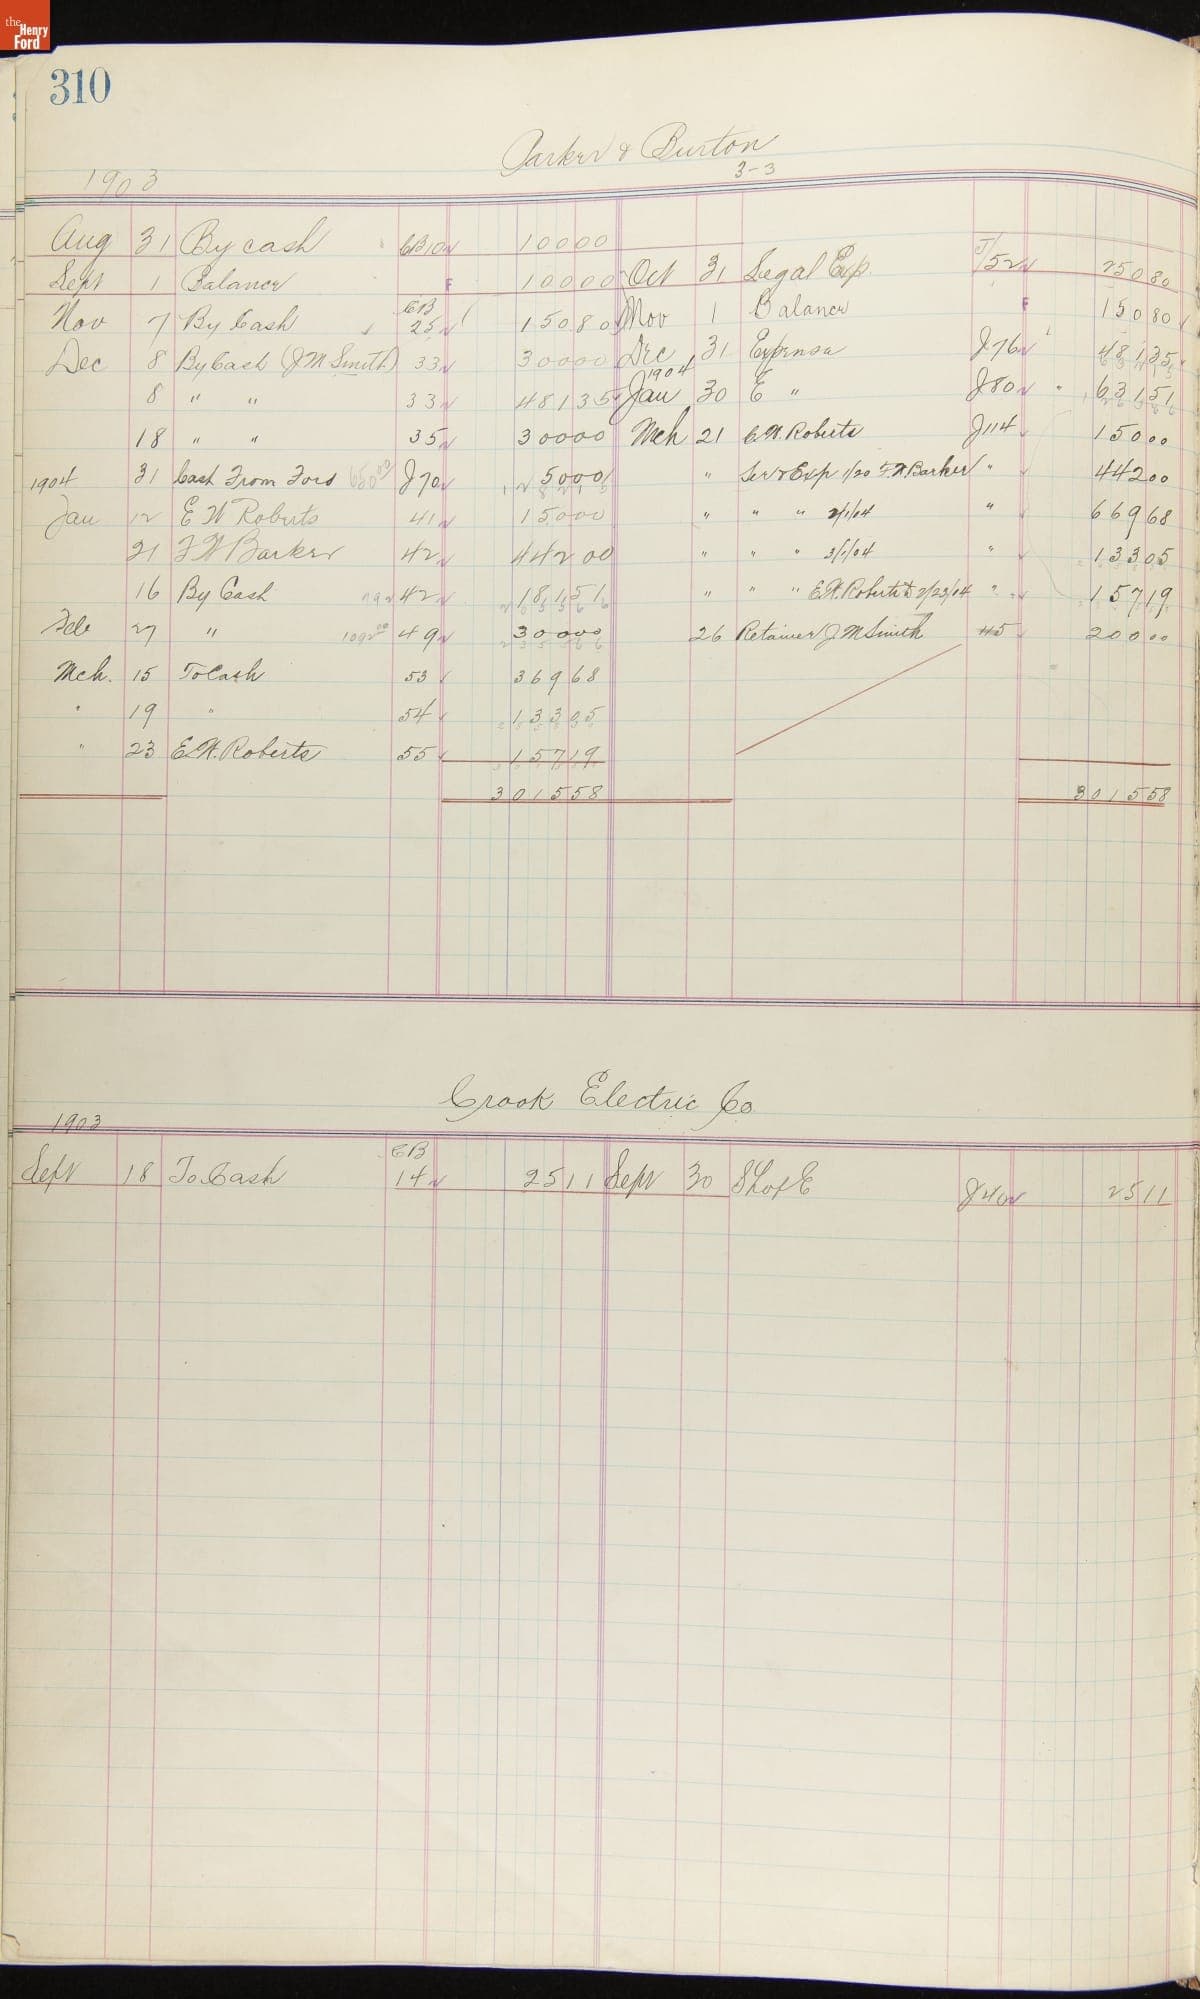 the Henry Ford
310
Parker & Burton
3-3
1903
Aug 31 By cash CB10 100 00
Sept 1 Balance F 100 00 Oct 31 Legal Exp. J/52 250 80
Nov 7 By Cash CB 25 150 80 Nov 1 Balance F 150 80
Dec 8 By Cash (J M Smith) 33 300 00 Dec 31 Expense J76 481 35
8 " " 33 481 35 1904 Jan 30 E " J80 631 51
18 " " 35 300 00 Mch 21 E.W. Roberts J114 150 00
1904 31 Cash From Ford J70 50 00 " Ser & Exp 1/20 F.W Barker " 442 00
Jan 12 E W Roberts 41 150 00 " " " " 2/1/04 " 669 68
21 F W Barker 42 442 00 " " " " 3/1/04 " 133 05
16 By Cash 42 181 51 " " " " E.W. Roberts to 2/23/04 " 157 19
Feb 27 " 1092 00 49 300 00 26 Retainer J M Smith 45 200 00
Mch. 15 To Cash 53 369 68
" 19 " 54 133 05
" 23 E.W. Roberts 55 157 19
3015 58 3015 58
Crook Electric Co
1903
Sept 18 To Cash CB 14 25 11 Sept 30 Shop E J40 25 11